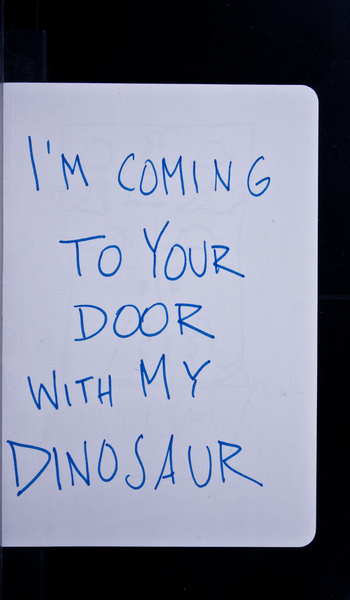 I'M COMING
TO YOUR
DOOR
WITH MY
DINOSAUR